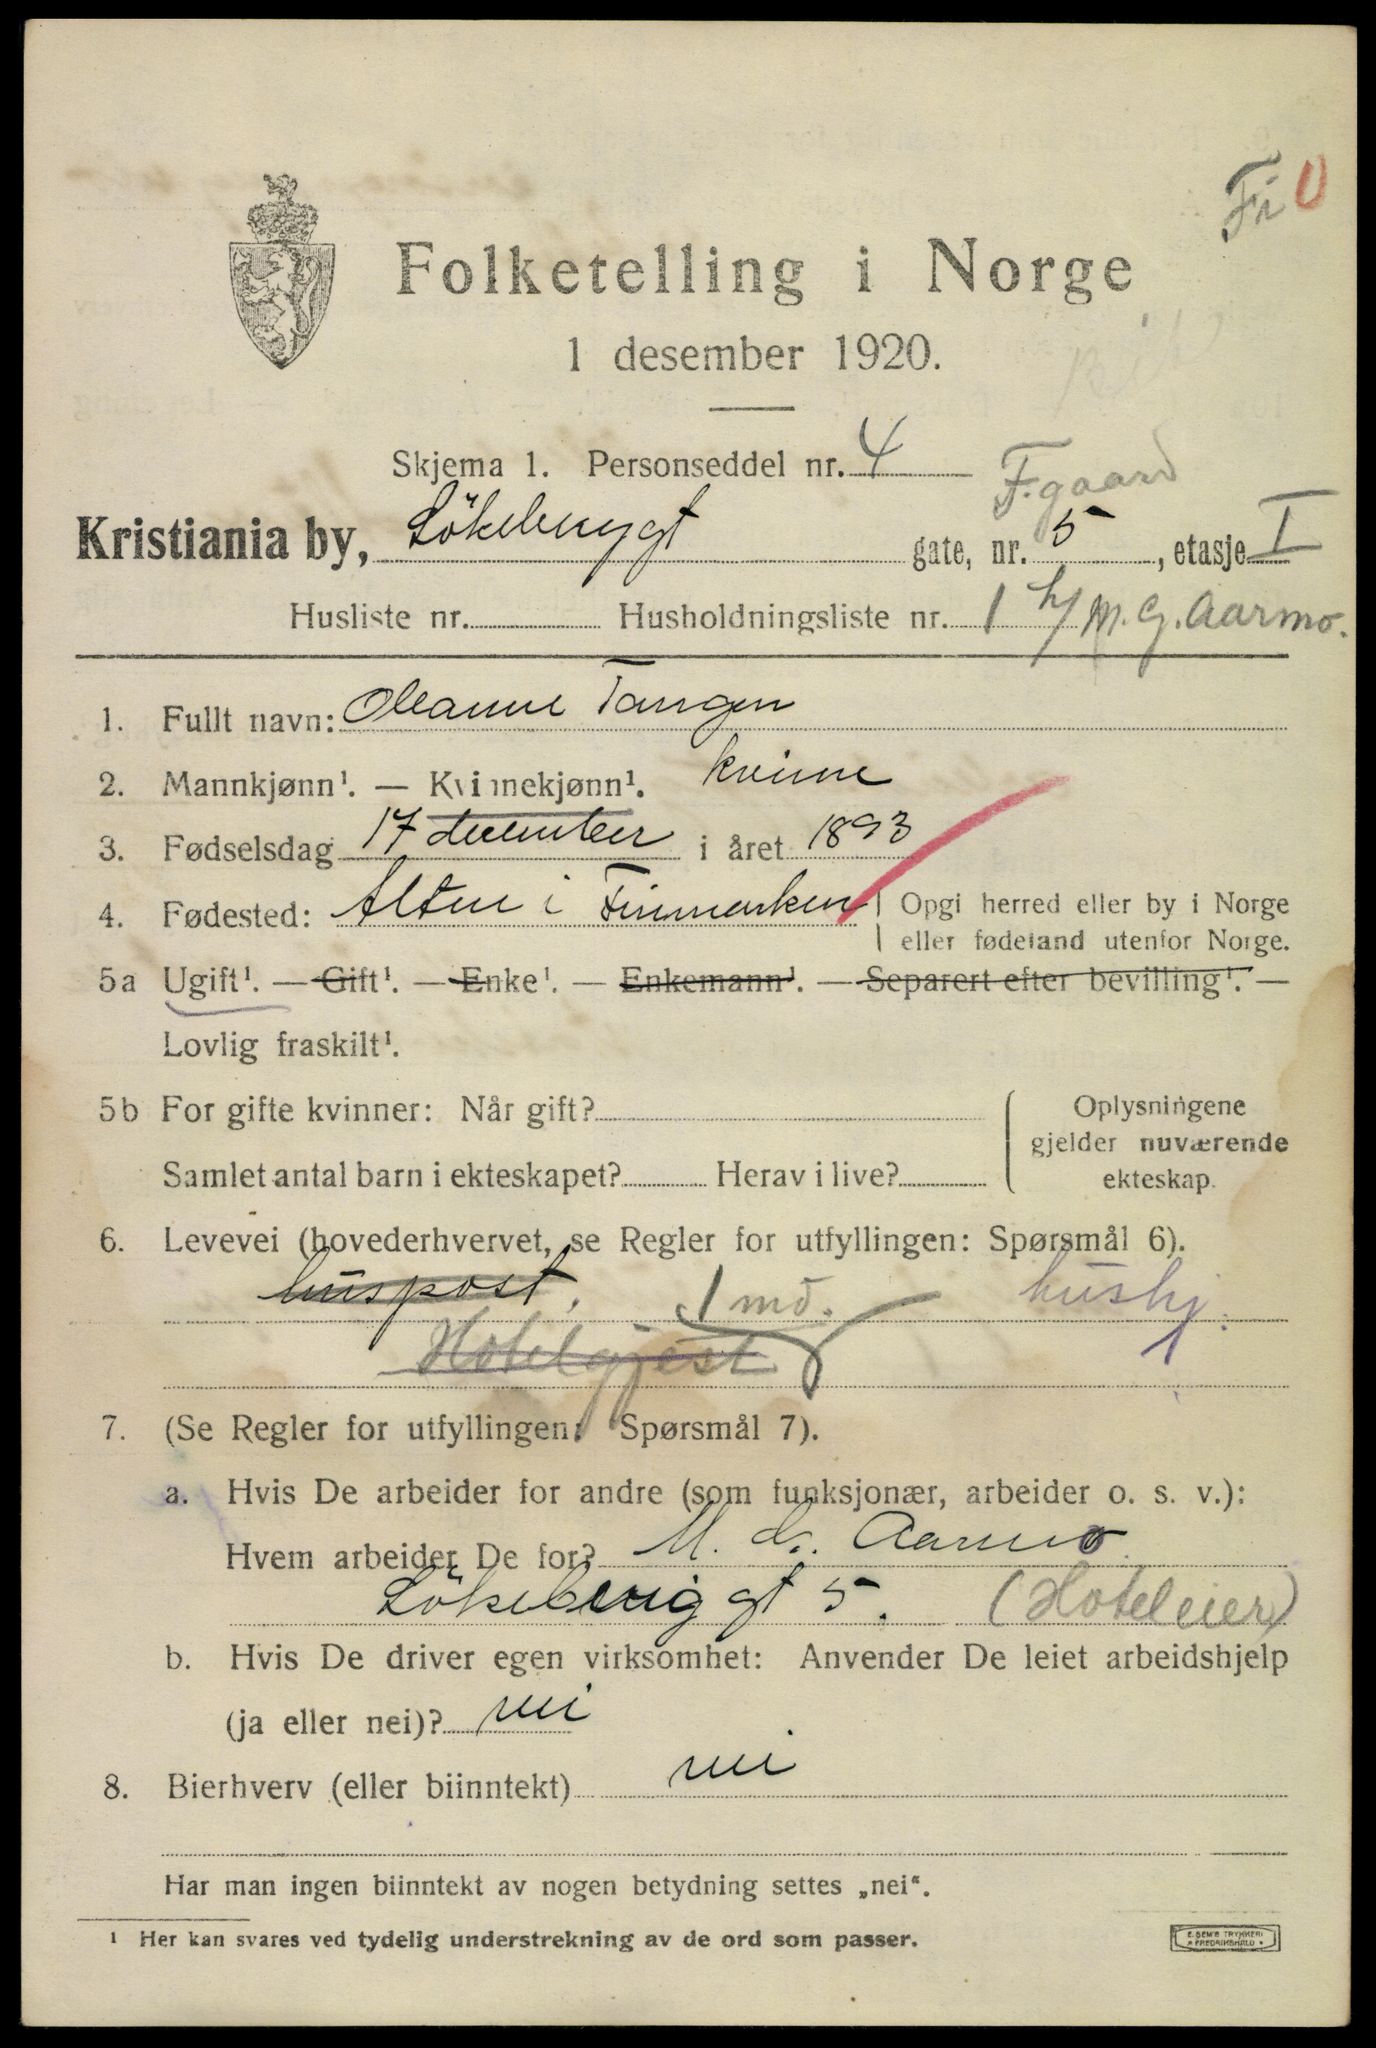 Fi 0
Folketelling i Norge
1 desember 1920.
Skjema 1. Personseddel nr. 4
F.gaard
Kristiania by, Lökeberggt gate, nr. 5, etasje I
Husliste nr. Husholdningsliste nr. 1 h/ M. G. Aarmo.
1. Fullt navn: Oleanne Tangen
2. Mannkjønn¹. — Kvinnekjønn¹. kvinne
3. Fødselsdag 17 december i året 1893
4. Fødested: Alten i Finmarken
Opgi herred eller by i Norge
eller fødeland utenfor Norge.
5a Ugift¹. — Gift¹. — Enke¹. — Enkemann¹. — Separert efter bevilling¹. —
Lovlig fraskilt¹.
5b For gifte kvinner: Når gift?
Samlet antal barn i ekteskapet? Herav i live?
Oplysningene
gjelder nuværende
ekteskap.
6. Levevei (hovederhvervet, se Regler for utfyllingen: Spørsmål 6).
huspost. 1 md. hushj.
Hotelgjest
7. (Se Regler for utfyllingen: Spørsmål 7).
a. Hvis De arbeider for andre (som funksjonær, arbeider o. s. v.):
Hvem arbeider De for? M. G. Aarmo
Lökeberggt 5. (Hoteleier)
b. Hvis De driver egen virksomhet: Anvender De leiet arbeidshjelp
(ja eller nei)? nei
8. Bierhverv (eller biinntekt) nei
Har man ingen biinntekt av nogen betydning settes „nei“.
¹ Her kan svares ved tydelig understrekning av de ord som passer.
E. SEM'S TRYKKERI
FREDRIKSHALD